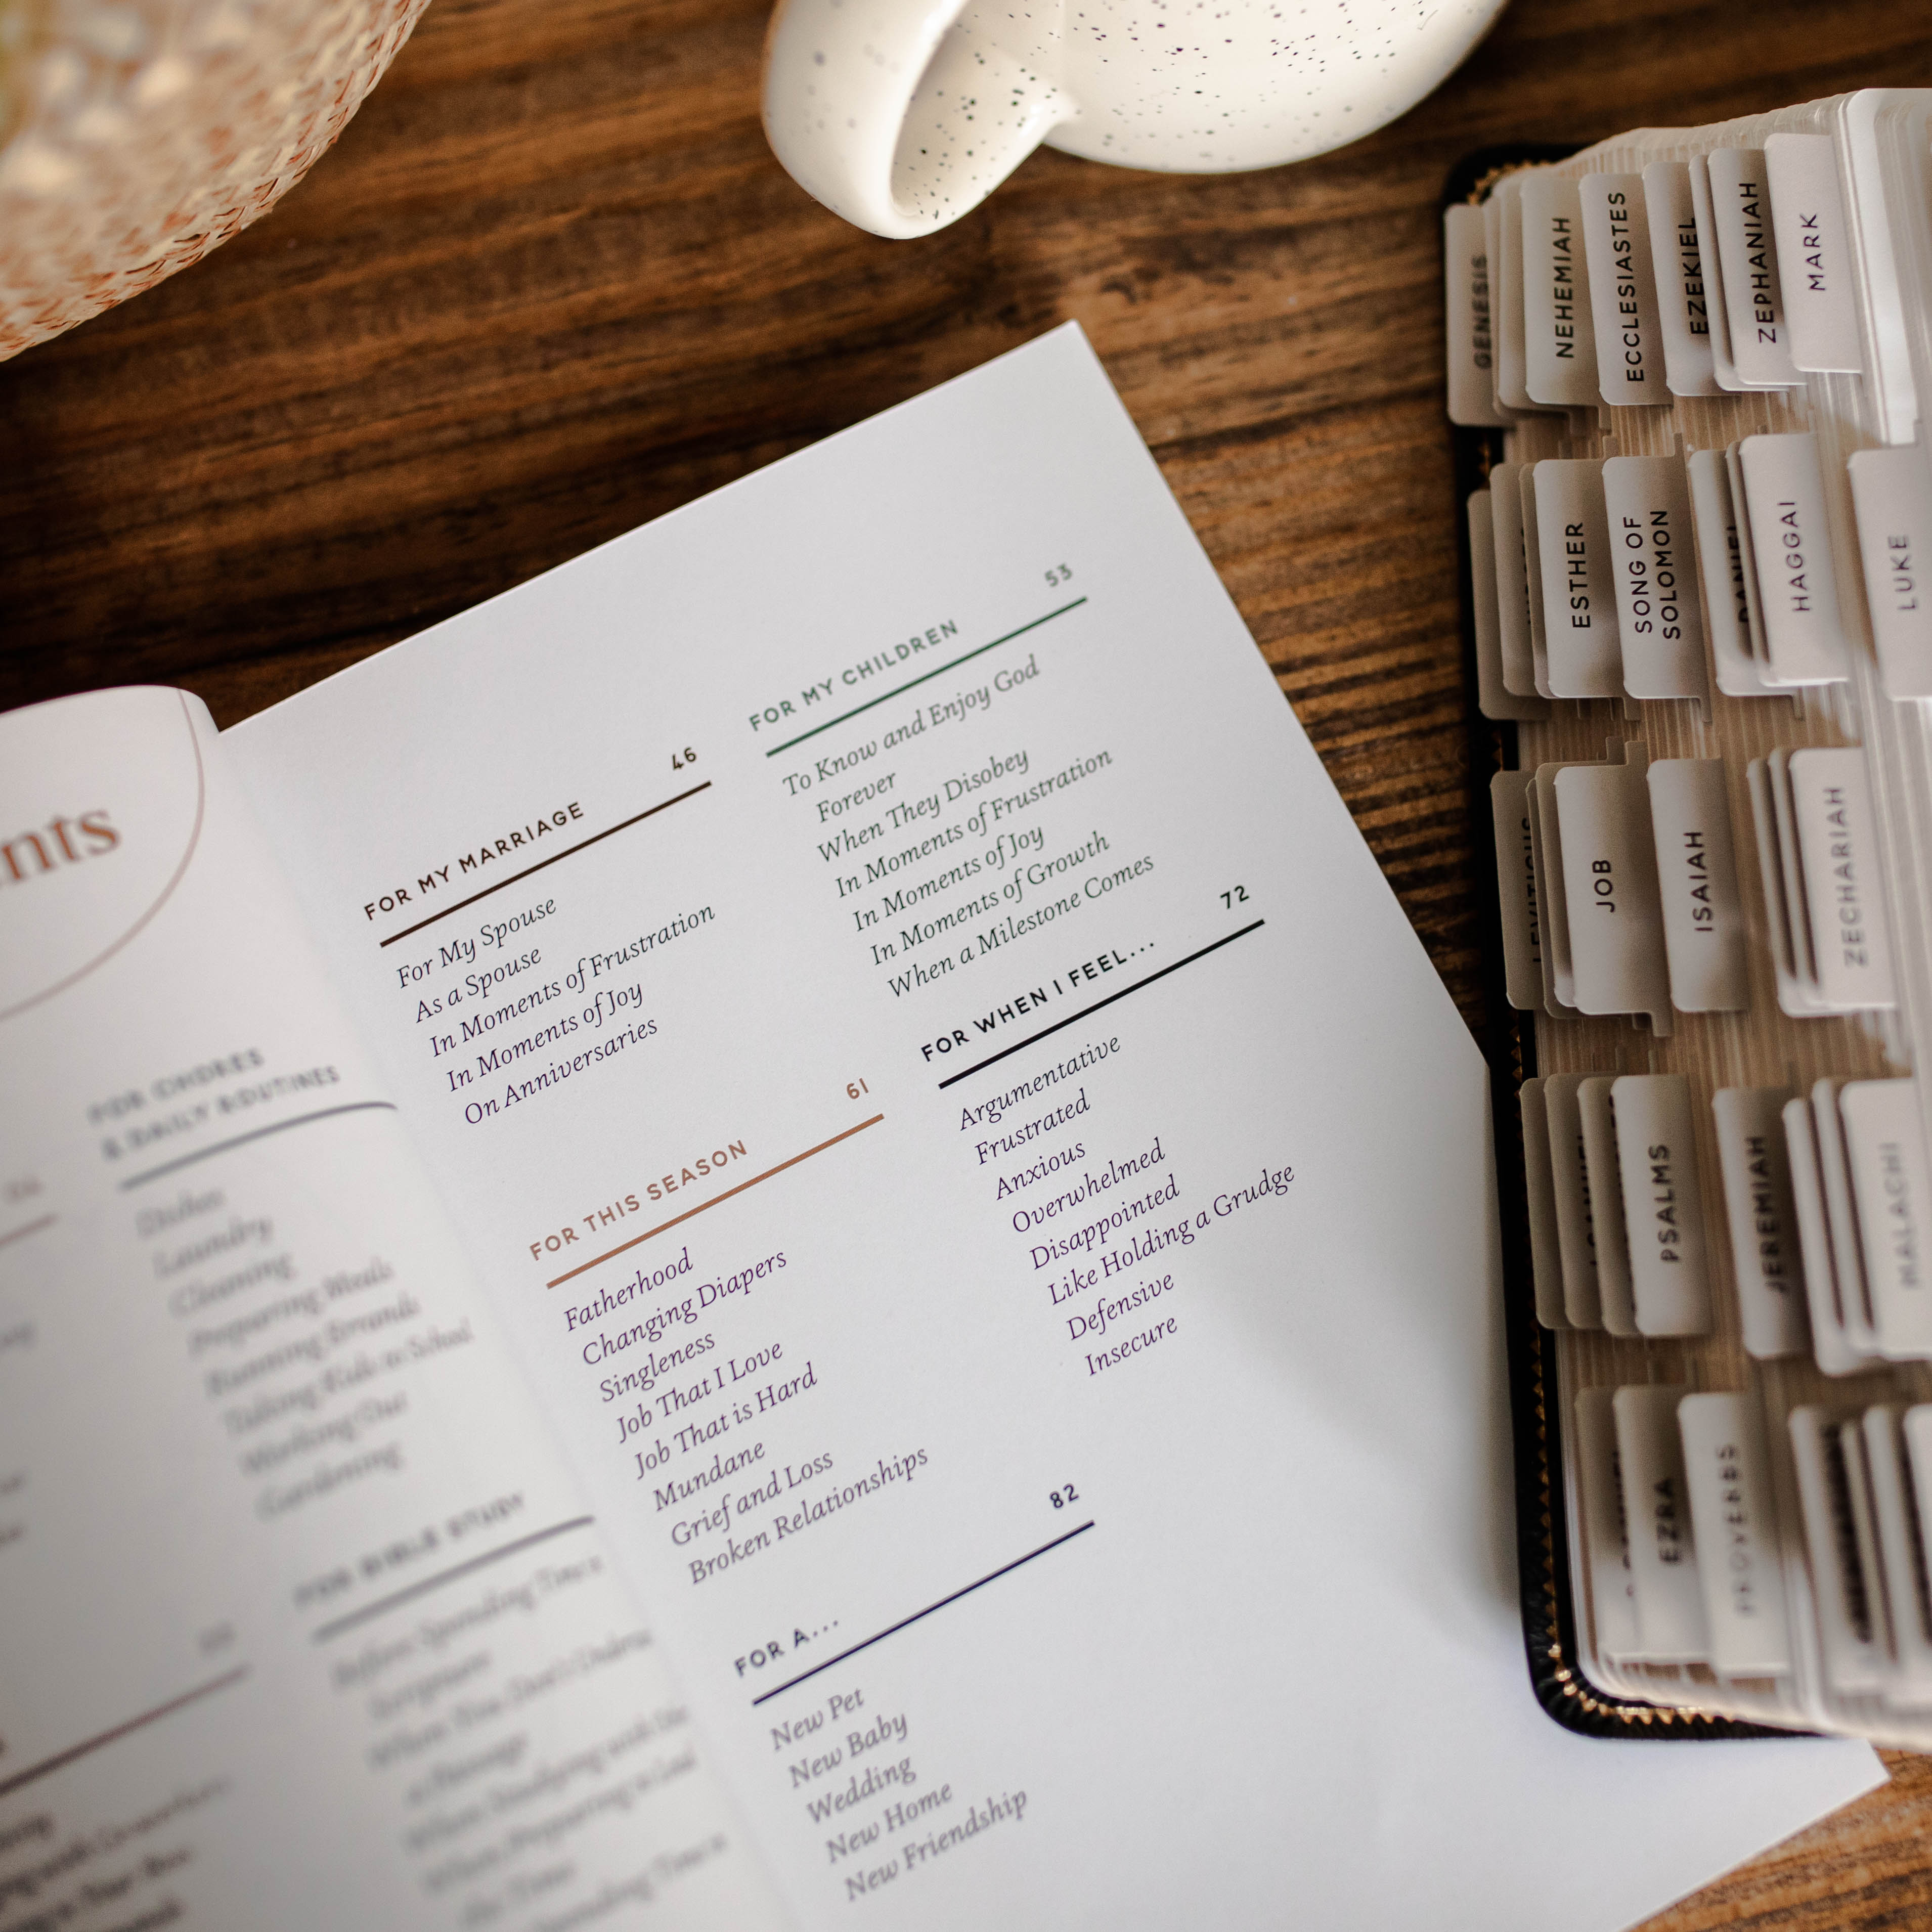 nts
FOR CHORES
& DAILY ROUTINES
Dishes
Laundry
Cleaning
Preparing Meals
Running Errands
Taking Kids to School
Working Out
Gardening
FOR BIBLE STUDY
Before Spending Time
FOR MY MARRIAGE 46
For My Spouse
As a Spouse
In Moments of Frustration
In Moments of Joy
On Anniversaries
FOR THIS SEASON 61
Fatherhood
Changing Diapers
Singleness
Job That I Love
Job That is Hard
Mundane
Grief and Loss
Broken Relationships
FOR A... 82
New Pet
New Baby
Wedding
New Home
New Friendship
FOR MY CHILDREN 53
To Know and Enjoy God
Forever
When They Disobey
In Moments of Frustration
In Moments of Joy
In Moments of Growth
When a Milestone Comes
FOR WHEN I FEEL... 72
Argumentative
Frustrated
Anxious
Overwhelmed
Disappointed
Like Holding a Grudge
Defensive
Insecure
GENESIS
NEHEMIAH
ECCLESIASTES
EZEKIEL
ZEPHANIAH
MARK
ESTHER
SONG OF
SOLOMON
DANIEL
HAGGAI
LUKE
LEVITICUS
JOB
ISAIAH
ZECHARIAH
PSALMS
JEREMIAH
MALACHI
EZRA
PROVERBS